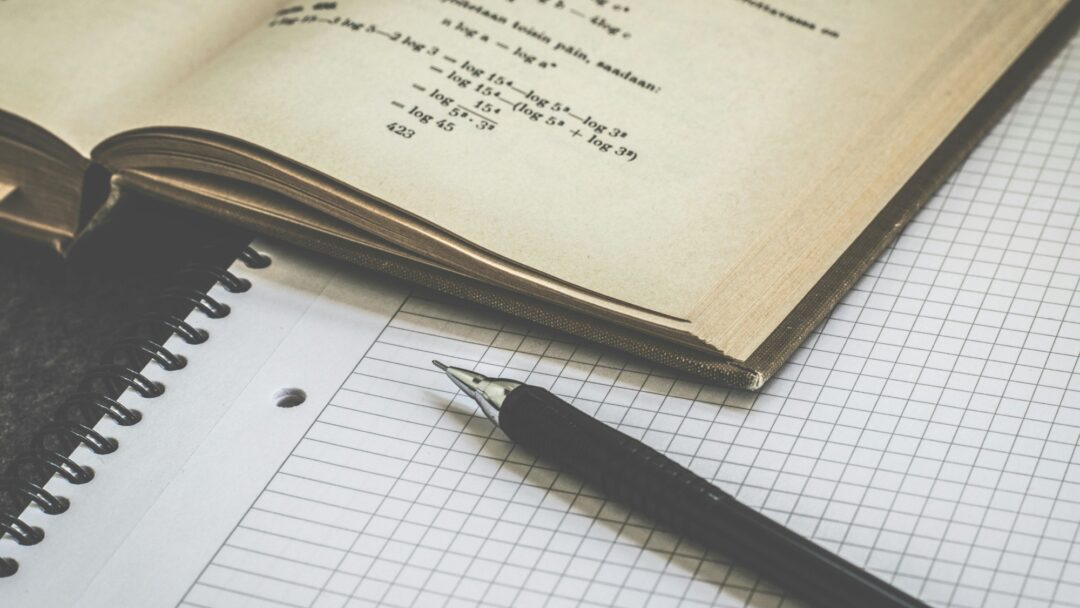 b — 4log c
toisin päin, saadaan:
n log a = log aⁿ
log 5—2 log 3 = log 15⁴—log 5³—log 3²
= log 15⁴—(log 5³ + log 3²)
= log 15⁴
5³ · 3²
= log 45
423